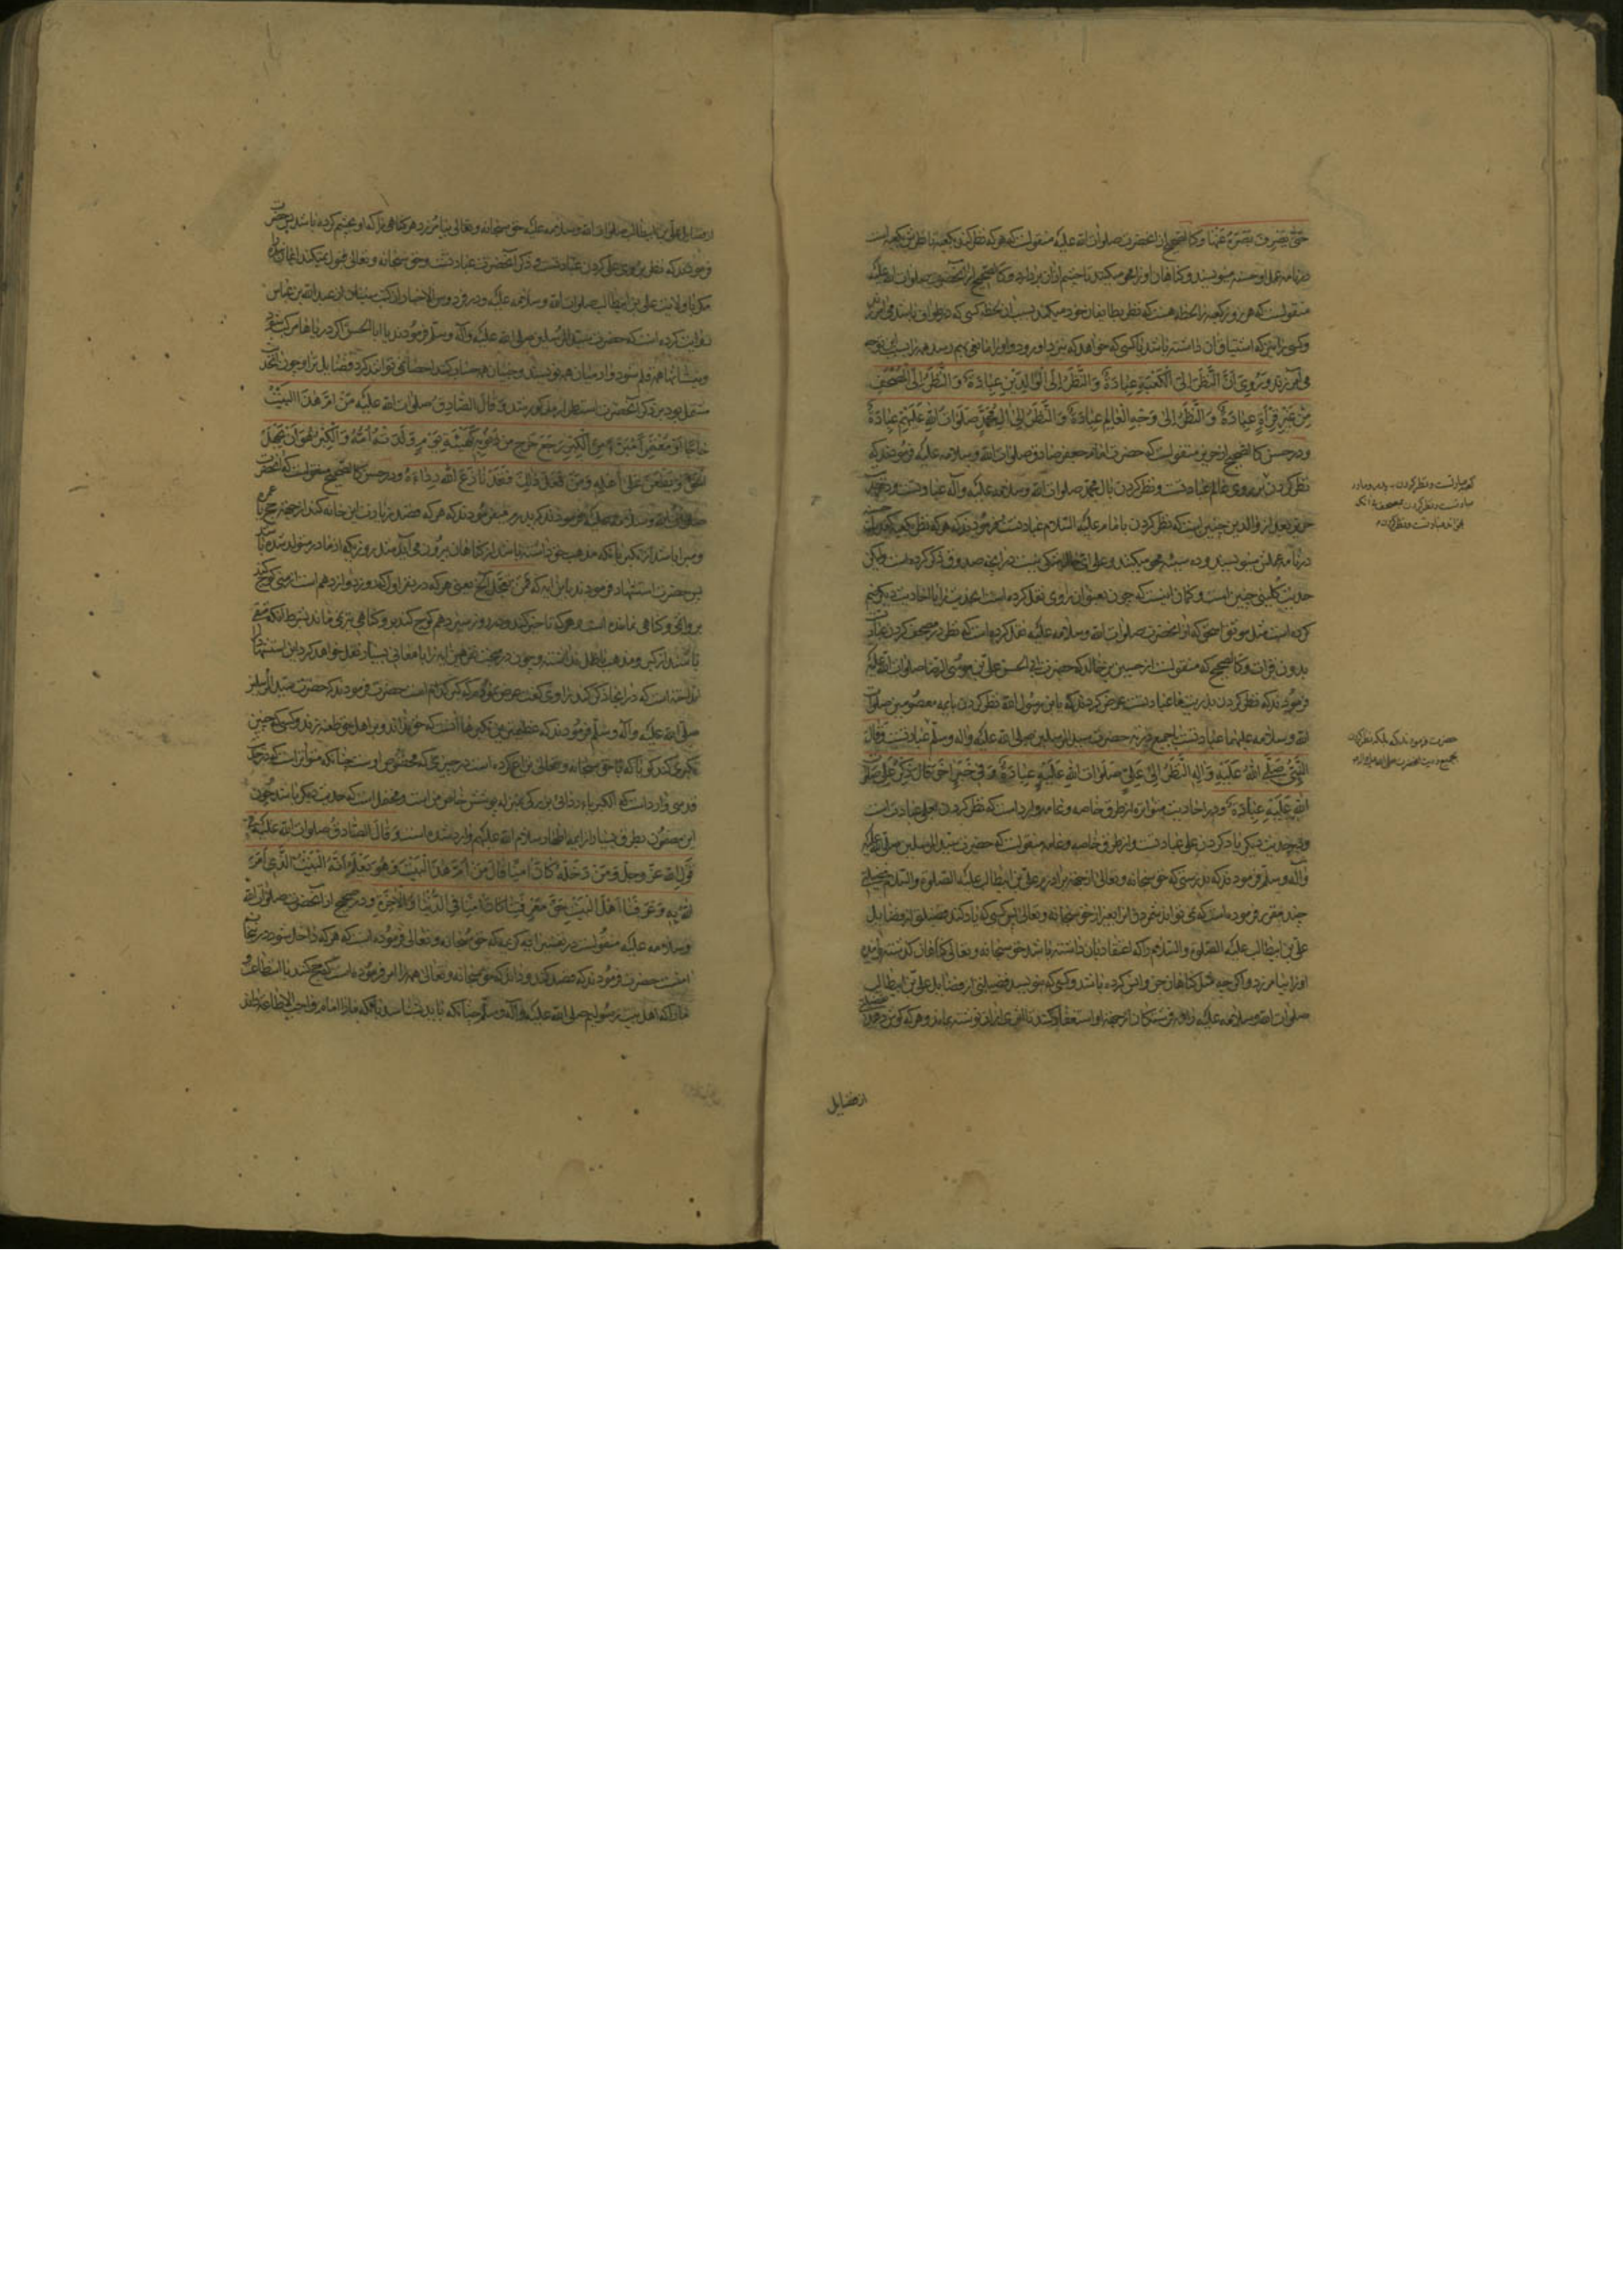 حتی یصرف بصره عنها و کالصحیح از آنحضرت صلوات الله علیه منقولست که هر که نظر کند بکعبه تا نظرش بکعبه است
در نامه عمل او حسنه مینویسند و گناهان او را محو میکنند تا چشم از آن بردارد و کالصحیح از آنحضرت صلوات الله علیه
منقولست که هر روز کعبه را لحظه هست که نظر بطایفان خود میکند بسبب آن لحظه کسی که در طواف باشد می آمرزد
و کسی را نیز که اشتیاق آن داشته باشد یا کسی که خواهد که نزد او رود و او را مانعی بهم رسد همه را بسبب توجه
می آمرزد و روی ان النظر الی الکعبة عبادة و النظر الی الوالدین عبادة و النظر الی المصحف
من غیر قرأة عبادة و النظر الی وجه العالم عبادة و النظر الی ال محمد صلوات الله علیهم عبادة
و در حسن کالصحیح از حریز منقولست که حضرت امام جعفر صادق صلوات الله و سلامه علیه فرمودند که
نظر کردن بر روی عالم عبادتست و نظر کردن بال محمد صلوات الله و سلامه علیه و آله عبادتست و در حدیث
حریز بعد از والدین چنین است که نظر کردن بامام علیه السلام عبادتست و فرمودند که هر که نظر بکعبه کند ده حسنه
در نامه عملش مینویسند و ده سیئه محو میکنند و علی ای حال شکی نیست در آنچه صدوق ذکر کرده است و لیکن
حدیث کلینی چنین است و گمان اینست که چون بعنوان روی نقل کرده است این حدیث را با احادیث دیگر ضم
کرده است مثل موثق اسحق که از آنحضرت صلوات الله و سلامه علیه نقل کرده است که نظر در مصحف کردن عبادتست
بدون قرات و کالصحیح که منقولست از حسین بن خالد که حضرت ابی الحسن علی بن موسی الرضا صلوات الله علیه
فرمودند که نظر کردن بذریت ما عبادتست عرض کردند که یا بن رسول الله نظر کردن بایمه معصومین صلوات
الله و سلامه علیهما عبادتست یا جمیع ذریه حضرت سید المرسلین صلی الله علیه و اله و سلم عبادتست و قال
النبی صلی الله علیه و اله النظر الی علی صلوات الله علیه عبادة و فی خبر اخر قال ذکر علی صلوات
الله علیه عبادة و در احادیث متواتره از طرق خاصه و عامه وارد است که نظر کردن بعلی عبادت است
و در حدیث دیگر یاد کردن علی عبادتست و از طرق خاصه و عامه منقولست که حضرت سید المرسلین صلی الله علیه
و آله و سلم فرمودند که بدرستی که حق سبحانه و تعالی از جهة برادرم علی بن ابیطالب علیه الصلوة و السلام فضیلتی
چند مقرر فرموده است که نمی تواند شمردن آنرا بغیر از حق سبحانه و تعالی پس کسی که یاد کند فضیلتی از فضایل
علی بن ابیطالب علیه الصلوة و السلام را که اعتقاد بآن داشته باشد حق سبحانه و تعالی گناهان گذشته و آینده
او را بیامرزد و اگر چه مثل گناهان جن و انس کرده باشد و کسی که بنویسد فضیلتی از فضایل علی بن ابیطالب
صلوات الله و سلامه علیه را فرشتگان از جهة او استغفار کنند تا اثری از آن نوشته بماند و هر که گوش دهد فضیلتی
از فضایل
که عبادتست و نظر کردن به پدر و مادر
عبادتست و نظر کردن بمصحف بی آنکه
بخواند عبادتست و نظر کردن
حضرت فرمودند که بلکه نظر کردن
بجمیع ذریت آنحضرت صلی الله علیه و آله
از فضایل علی بن ابیطالب صلوات الله و سلامه علیه حق سبحانه و تعالی بیامرزد هر گناهی را که او بچشم کرده باشد پس حضرت
فرمودند که نظر بر روی علی کردن عبادتست و ذکر آنحضرت عبادتست و حق سبحانه و تعالی قبول نمیکند ایمان بنده را
مگر با ولایت علی بن ابیطالب صلوات الله و سلامه علیه و در فردوس الاخبار از کتب سنیان از عبد الله بن عباس
روایت کرده است که حضرت سید المرسلین صلی الله علیه و آله و سلم فرمودند یا ابا الحسن اگر دریاها مرکب شود
و بیشه‌ها همه قلم شود و آدمیان همه نویسند و جنیان همه حساب کنند احصا نمی توانند کرد فضایل ترا و چون حدیث
مشتمل بود بر ذکر آنحضرت استطرادا مذکور شد و قال الصادق صلوات الله علیه من ام هذا البیت
حاجا او معتمرا مبرءا من الکبر رجع من ذنوبه کهیئة یوم ولدته امه و الکبر هو ان یجهل
الحق و یطعن علی اهله و من فعل ذلک فقد نازع الله رداءه و در حسن کالصحیح منقولست که آنحضرت
صلوات الله و سلامه علیه فرمودند که پدرم میفرمودند که هر که قصد زیارت این خانه کند از جهة حج یا عمره
و مبرا باشد از تکبر یا آنکه مذهب حق داشته باشد از گناهان بیرون می آید مانند روزیکه از مادر متولد شده باشد
پس حضرت استشهاد فرمودند باین ایه که فمن تعجل الخ یعنی هر که در نفر اول که دوازدهم است از منی کوچ کند
بر وی گناهی نمانده است و هر که تاخیر کند و در روز سیزدهم کوچ کند بر وی گناهی نمی ماند بشرط آنکه متقی
باشد از کبر و مذهب باطل نداشته و چون در مبحث نفر همین آیه را با معانی بسیار نقل خواهد کرد این استشهاد را
انداخته است که در اینجا ذکر نکند راوی گفت عرض نمودم که کبر کدام است حضرت فرمودند که حضرت سید المرسلین
صلی الله علیه و آله و سلم فرمودند که عظیمترین تکبرها آنست که حق را نداند و بر اهل حق طعنه زند و کسی که چنین
تکبری کند گویا که با حق سبحانه و تعالی نزاع کرده است در چیزی که مخصوص اوست چنانکه متواتر است که در حدیث
قدسی وارد است که الکبریاء ردائی بزرگی بمنزله پوشش خاص منست و محتمل است که حدیث دیگر باشد چون
این مضمون بطرق بسیار از ایمه اطهار سلام الله علیهم وارد شده است و قال الصادق صلوات الله علیه فی
قول الله عز و جل و من دخله کان امنا قال من ام هذا البیت و هو یعلم انه البیت الذی امر
الله به و عرفنا اهل البیت حق معرفتنا کان امنا فی الدنیا و الاخرة و در صحیح از آنحضرت صلوات الله
و سلامه علیه منقولست در تفسیر آیه کریمه که حق سبحانه و تعالی فرموده است که هر که داخل شود در آنجا
امنست حضرت فرمودند که قصد کند و داند که حق سبحانه و تعالی همه را امر فرموده است که حج کنند با استطاعت
ما را که اهل بیت رسولیم صلی الله علیه و آله و سلم چنانکه باید بشناسد بآنکه ما را امام واجب الاطاعة داند